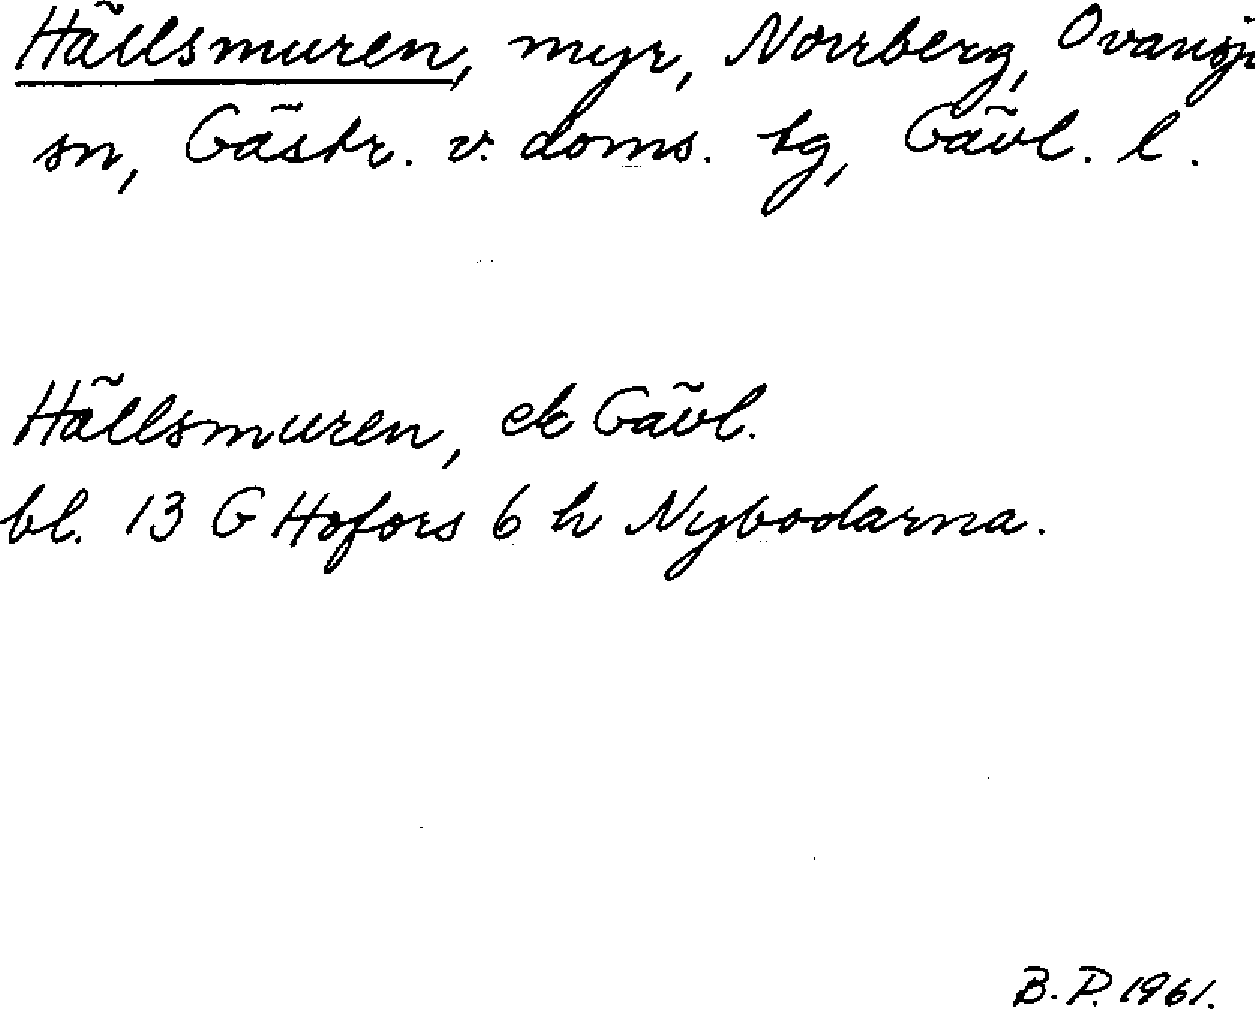 Hällsmuren, myr, Norrberg, Ovansj
sn, Gästr. v. doms. tg, Gävl. l.
Hällsmuren, ek Gävl.
bl. 13 G Hofors 6 h Nybodarna.
B.P. 1961.